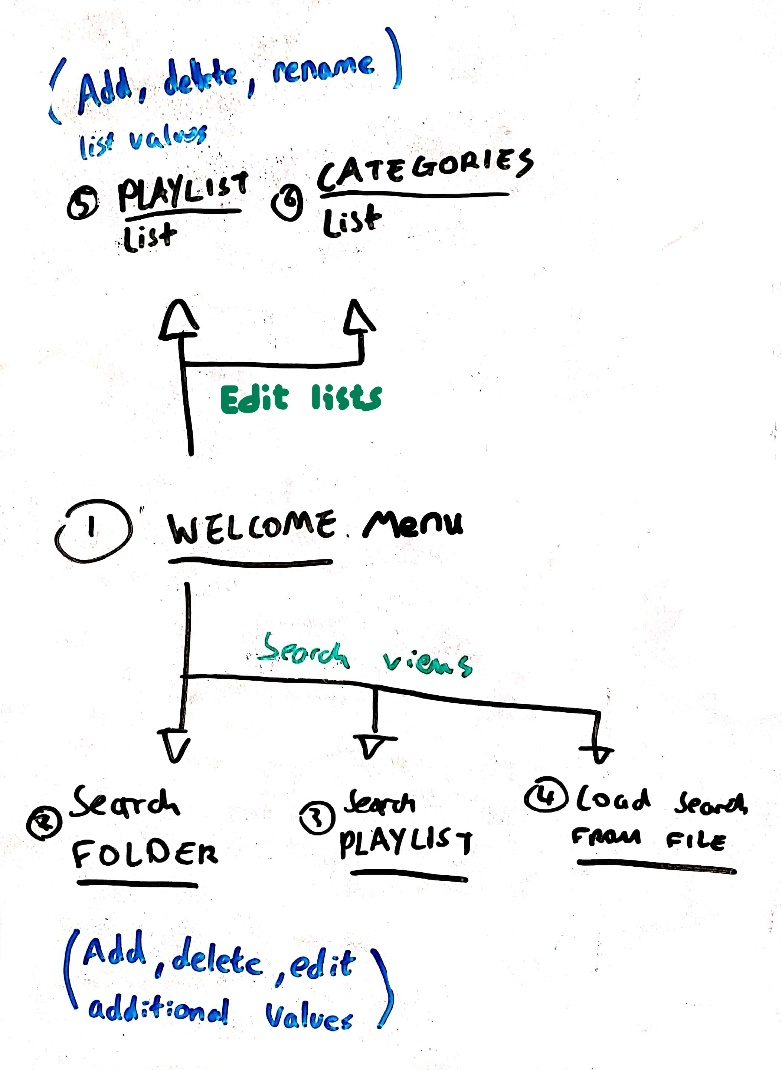 (Add, delete, rename)
list values
⑤ PLAYLIST
List
⑥ CATEGORIES
List
Edit lists
① WELCOME Menu
Search views
② Search
FOLDER
③ Search
PLAYLIST
④ Load Search
FROM FILE
(Add, delete, edit
additional values)